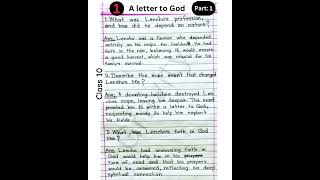 1 A letter to God Part:1
Class 10
1. What was Lencho's profession,
and how did he depend on nature?
Ans: Lencho was a farmer who depended
entirely on his crops for livelihood. He had
faith in the rain, believing it would ensure
a good harvest, which was crucial for his
family's survival.
2. Describe the main event that changed
Lencho's life?
Ans: A devasting hailstorm destroyed Len
cho's crops, leaving him despair. This event
prompted him to write a letter to God,
requesting money to help him replant
his fields
3. What was Lencho's faith in God
like?
Ans: Lencho had unwavering faith in
God would help him in his prayers
time of need and that his prayers
would be answered, reflecting his deep
spiritual connection.